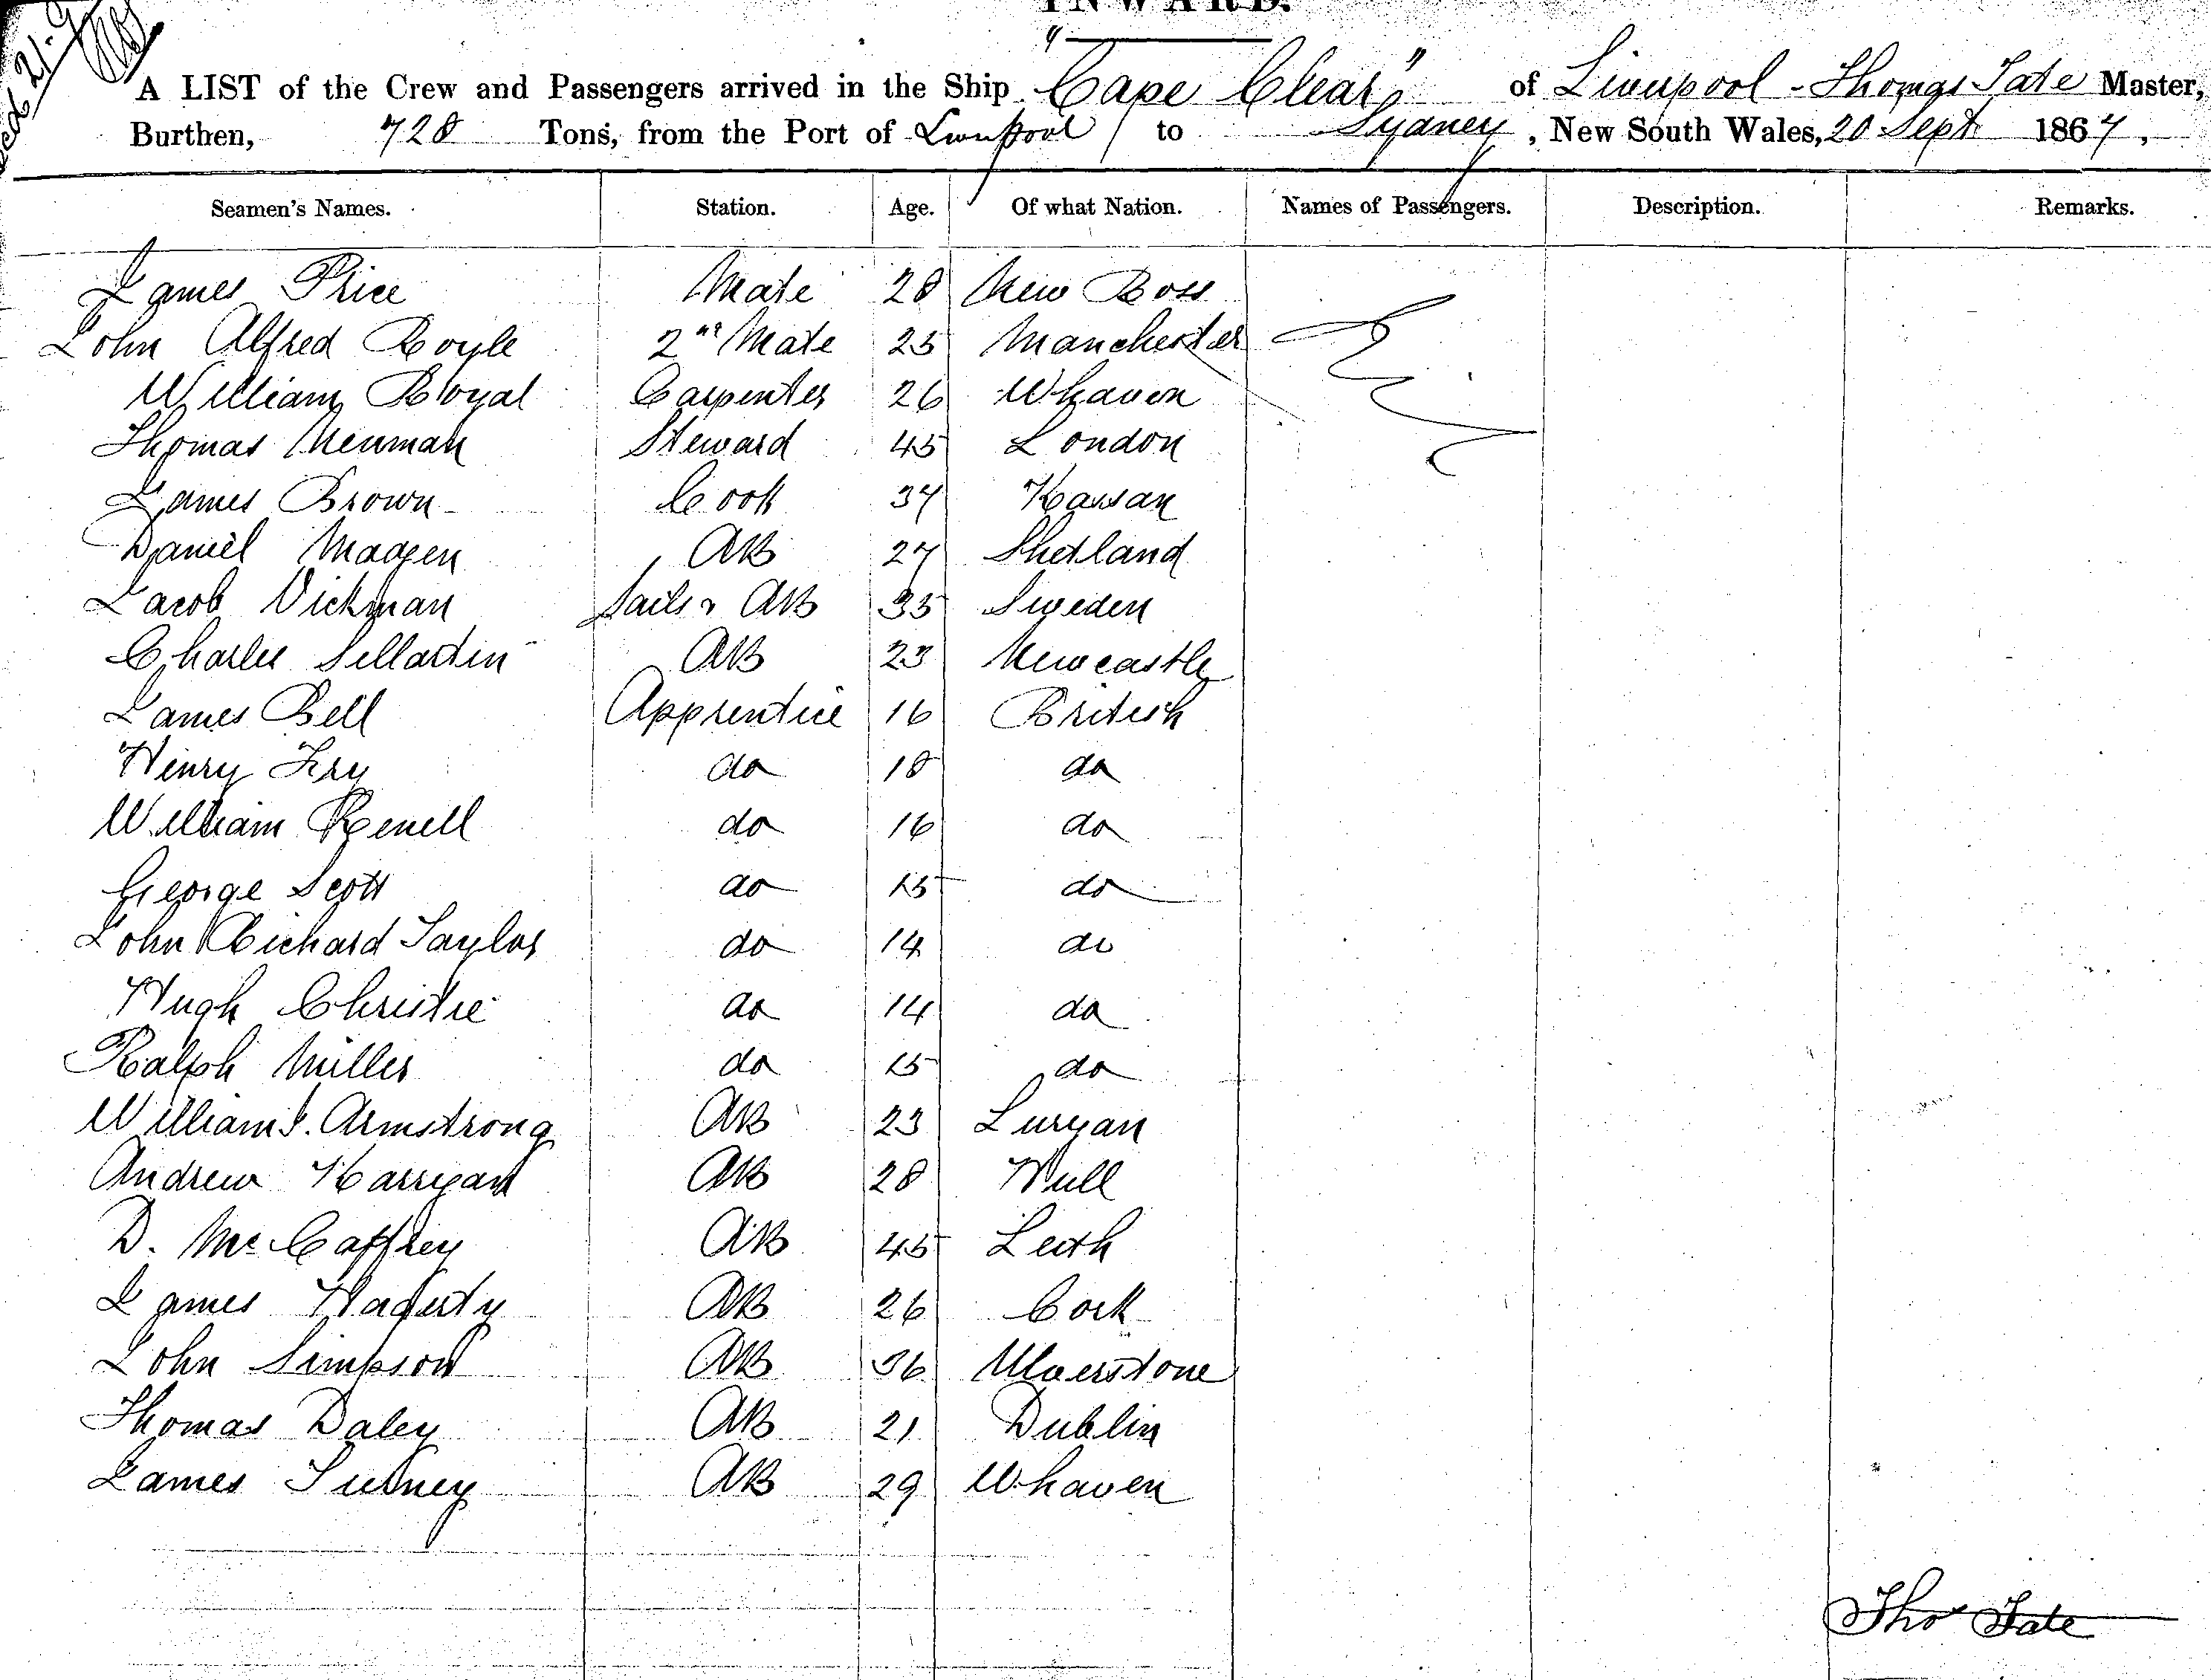 INWARD.
A LIST of the Crew and Passengers arrived in the Ship "Cape Clear" of Liverpool - Thomas Tate Master,
Burthen, 728 Tons, from the Port of Liverpool to Sydney, New South Wales, 20 Sept 1867,
Seamen's Names. Station. Age. Of what Nation. Names of Passengers. Description. Remarks.
James Price Mate 28 New Ross
John Alfred Royle 2nd Mate 25 Manchester
William Royal Carpenter 26 Whaven
Thomas Newman Steward 45 London
James Brown Cook 37 Nassau
Daniel AB 27 Shetland
Jacob Vickman Sails & AB 35 Sweden
Charles AB 23 Newcastle
James Bell Apprentice 16 British
Henry Fry do 18 do
William do 16 do
George Scott do 15 do
John Richard Taylor do 14 do
Hugh Christie do 14 do
Ralph Miller do 15 do
William J. Armstrong AB 23 Lurgan
Andrew Harrigan AB 28 Hull
D. McCaffrey AB 45 Leith
James Hagerty AB 26 Cork
John Simpson AB 36 Ulverstone
Thomas Daley AB 21 Dublin
James AB 29 Whaven
Thos Tate